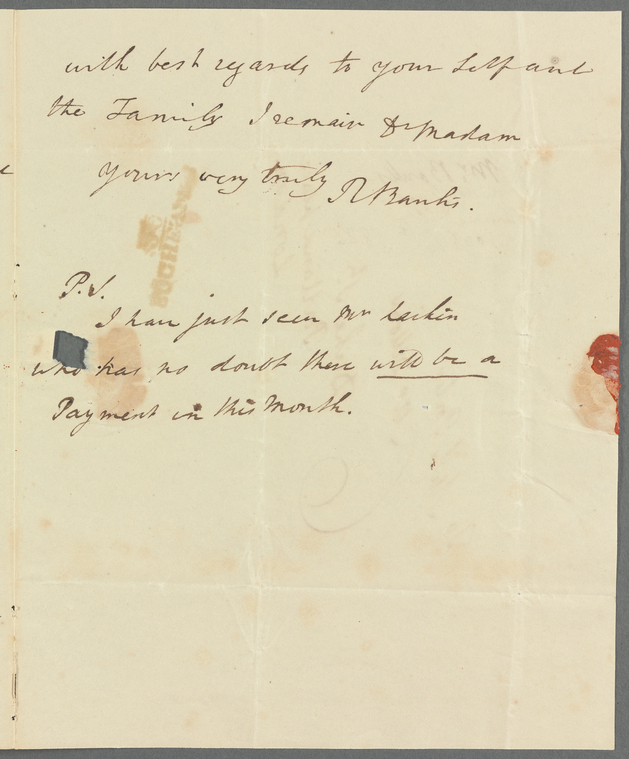 with best regards to your Self and
the Family I remain Dr Madam
Yours very truly R Banks.
P.S.
I have just seen Mr Larkin
who has no doubt there will be a
Payment in this Month.